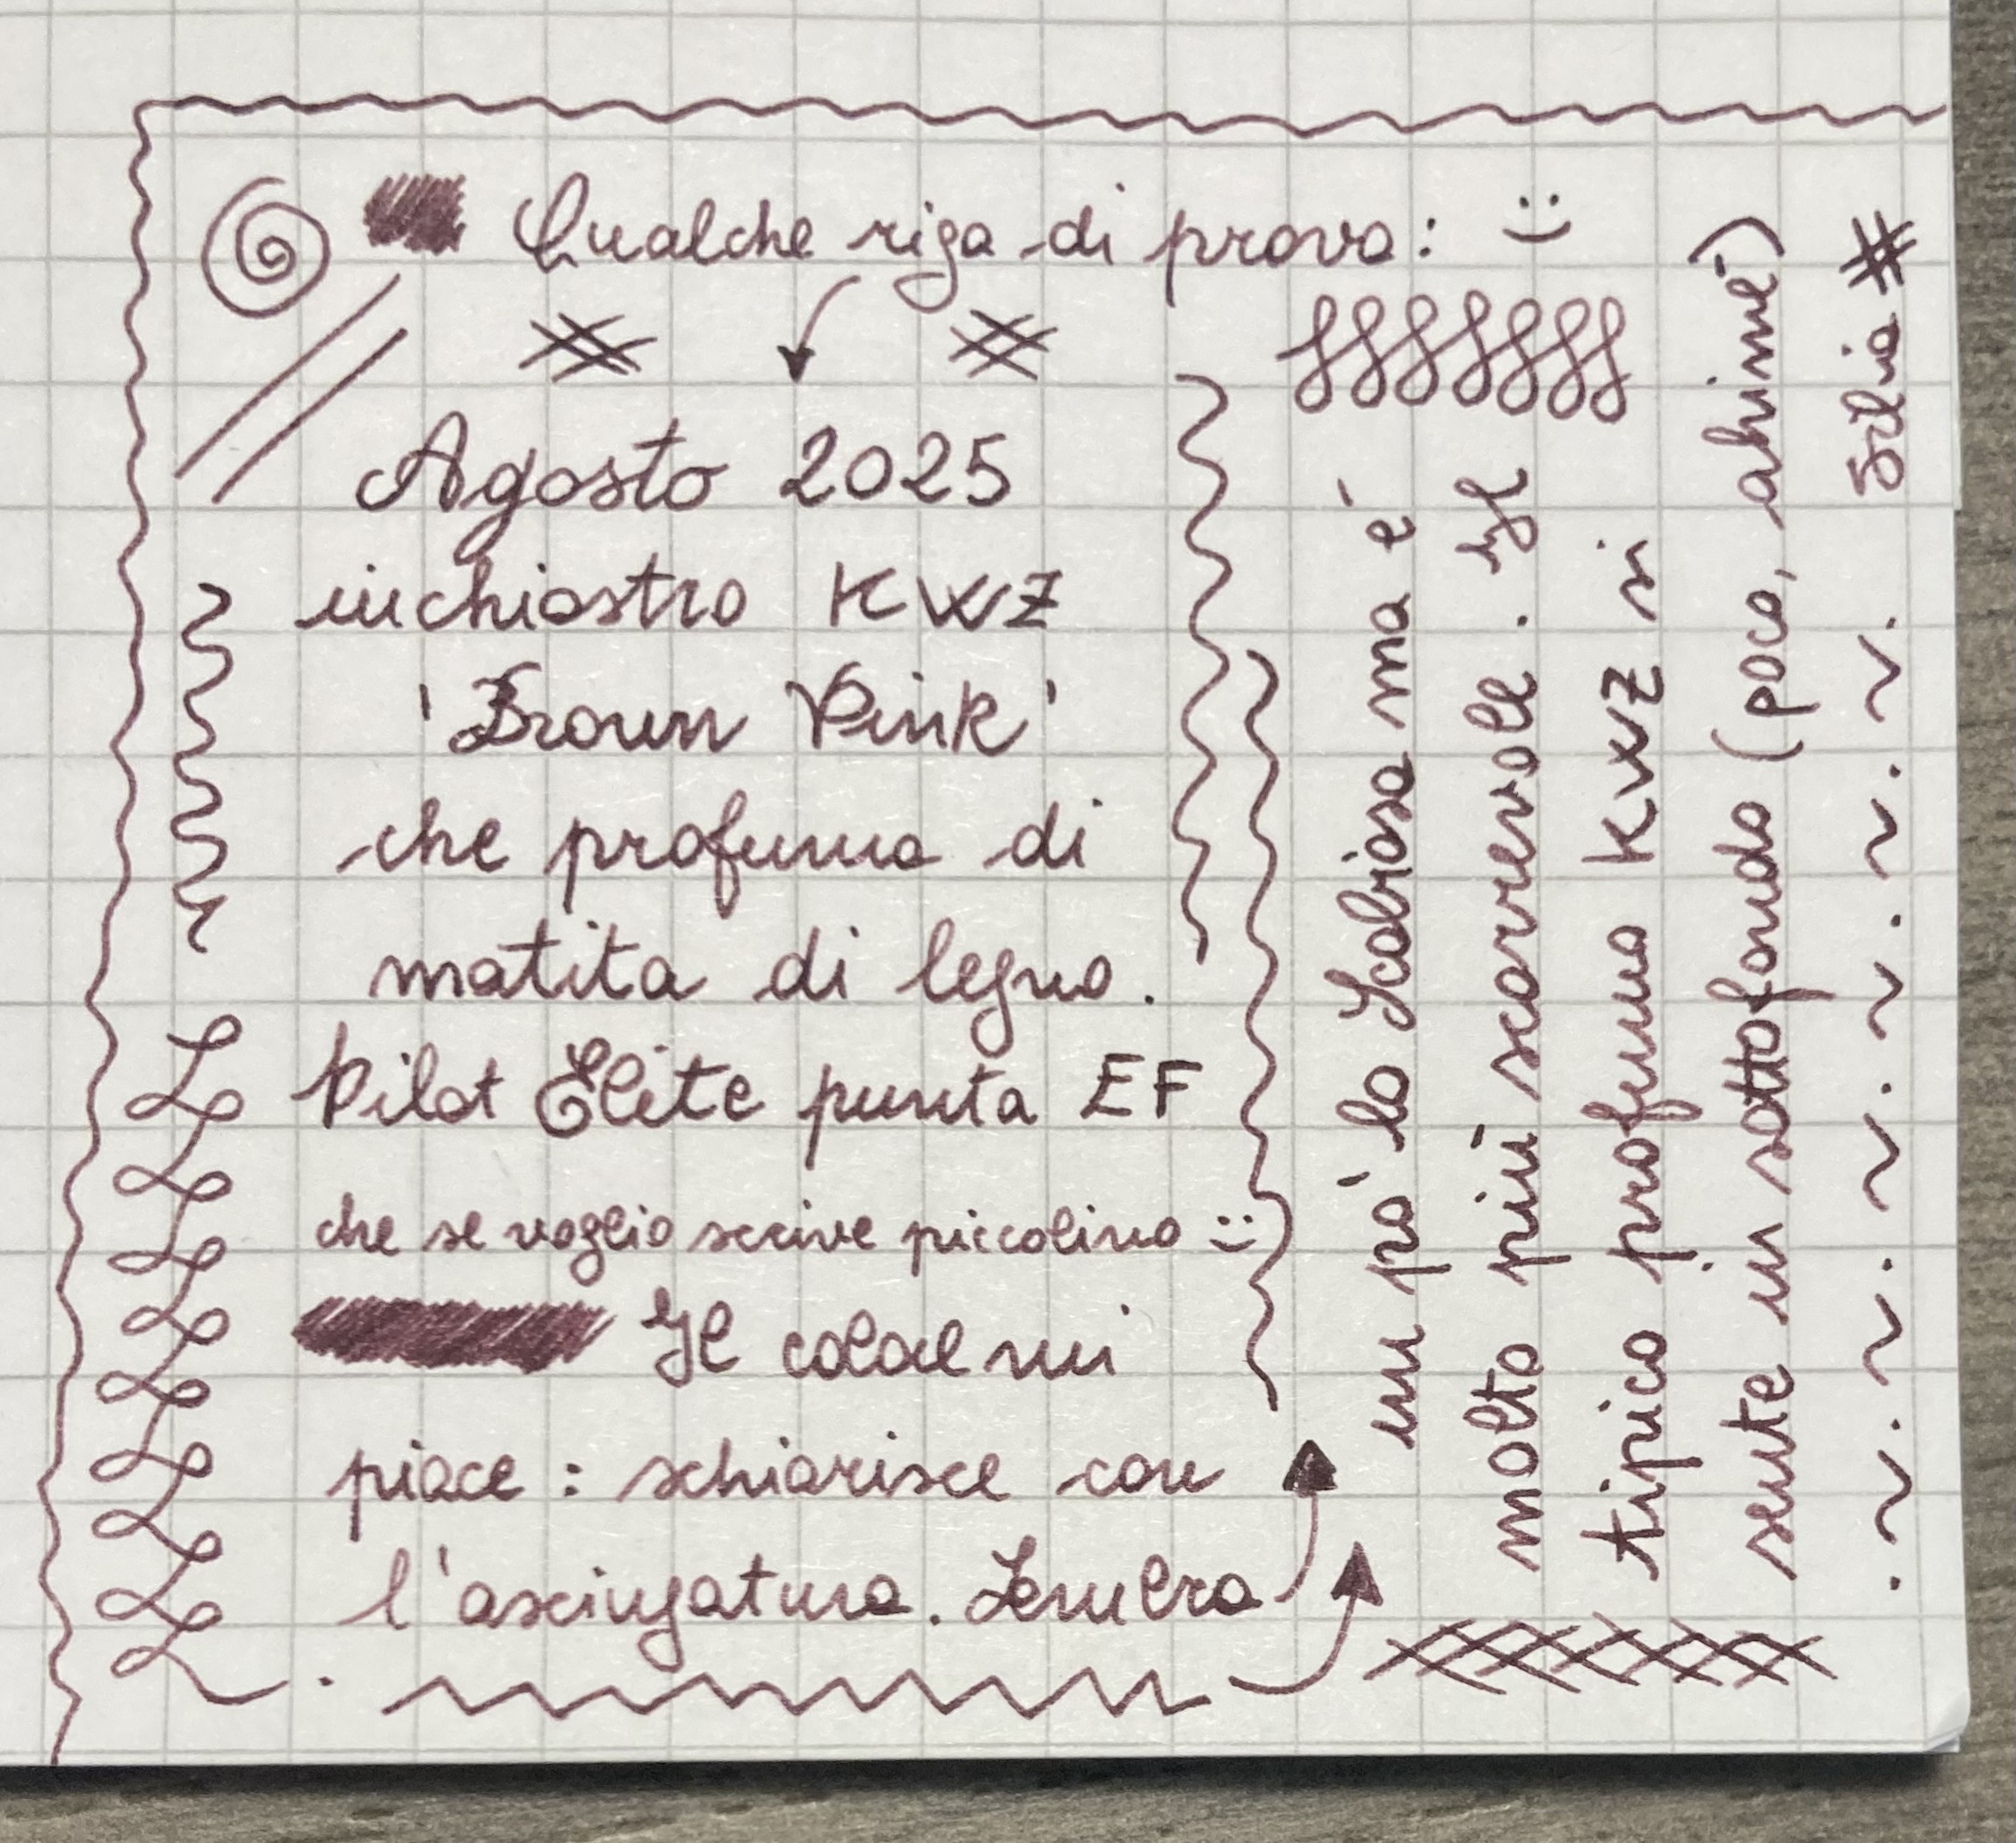 Qualche riga di prova: :)
Agosto 2025
inchiostro KWZ
'Brown Pink'
che profuma di
matita di legno.
Pilot Elite punta EF
che se voglio scrive piccolino :)
Il colore mi
piace: schiarisce con
l'asciugatura. Sembra
un pò la Scabiosa ma é
molto più scorrevole. Il
tipico profumo KWZ si
sente in sottofondo (poco, ahimé)
Silvia #